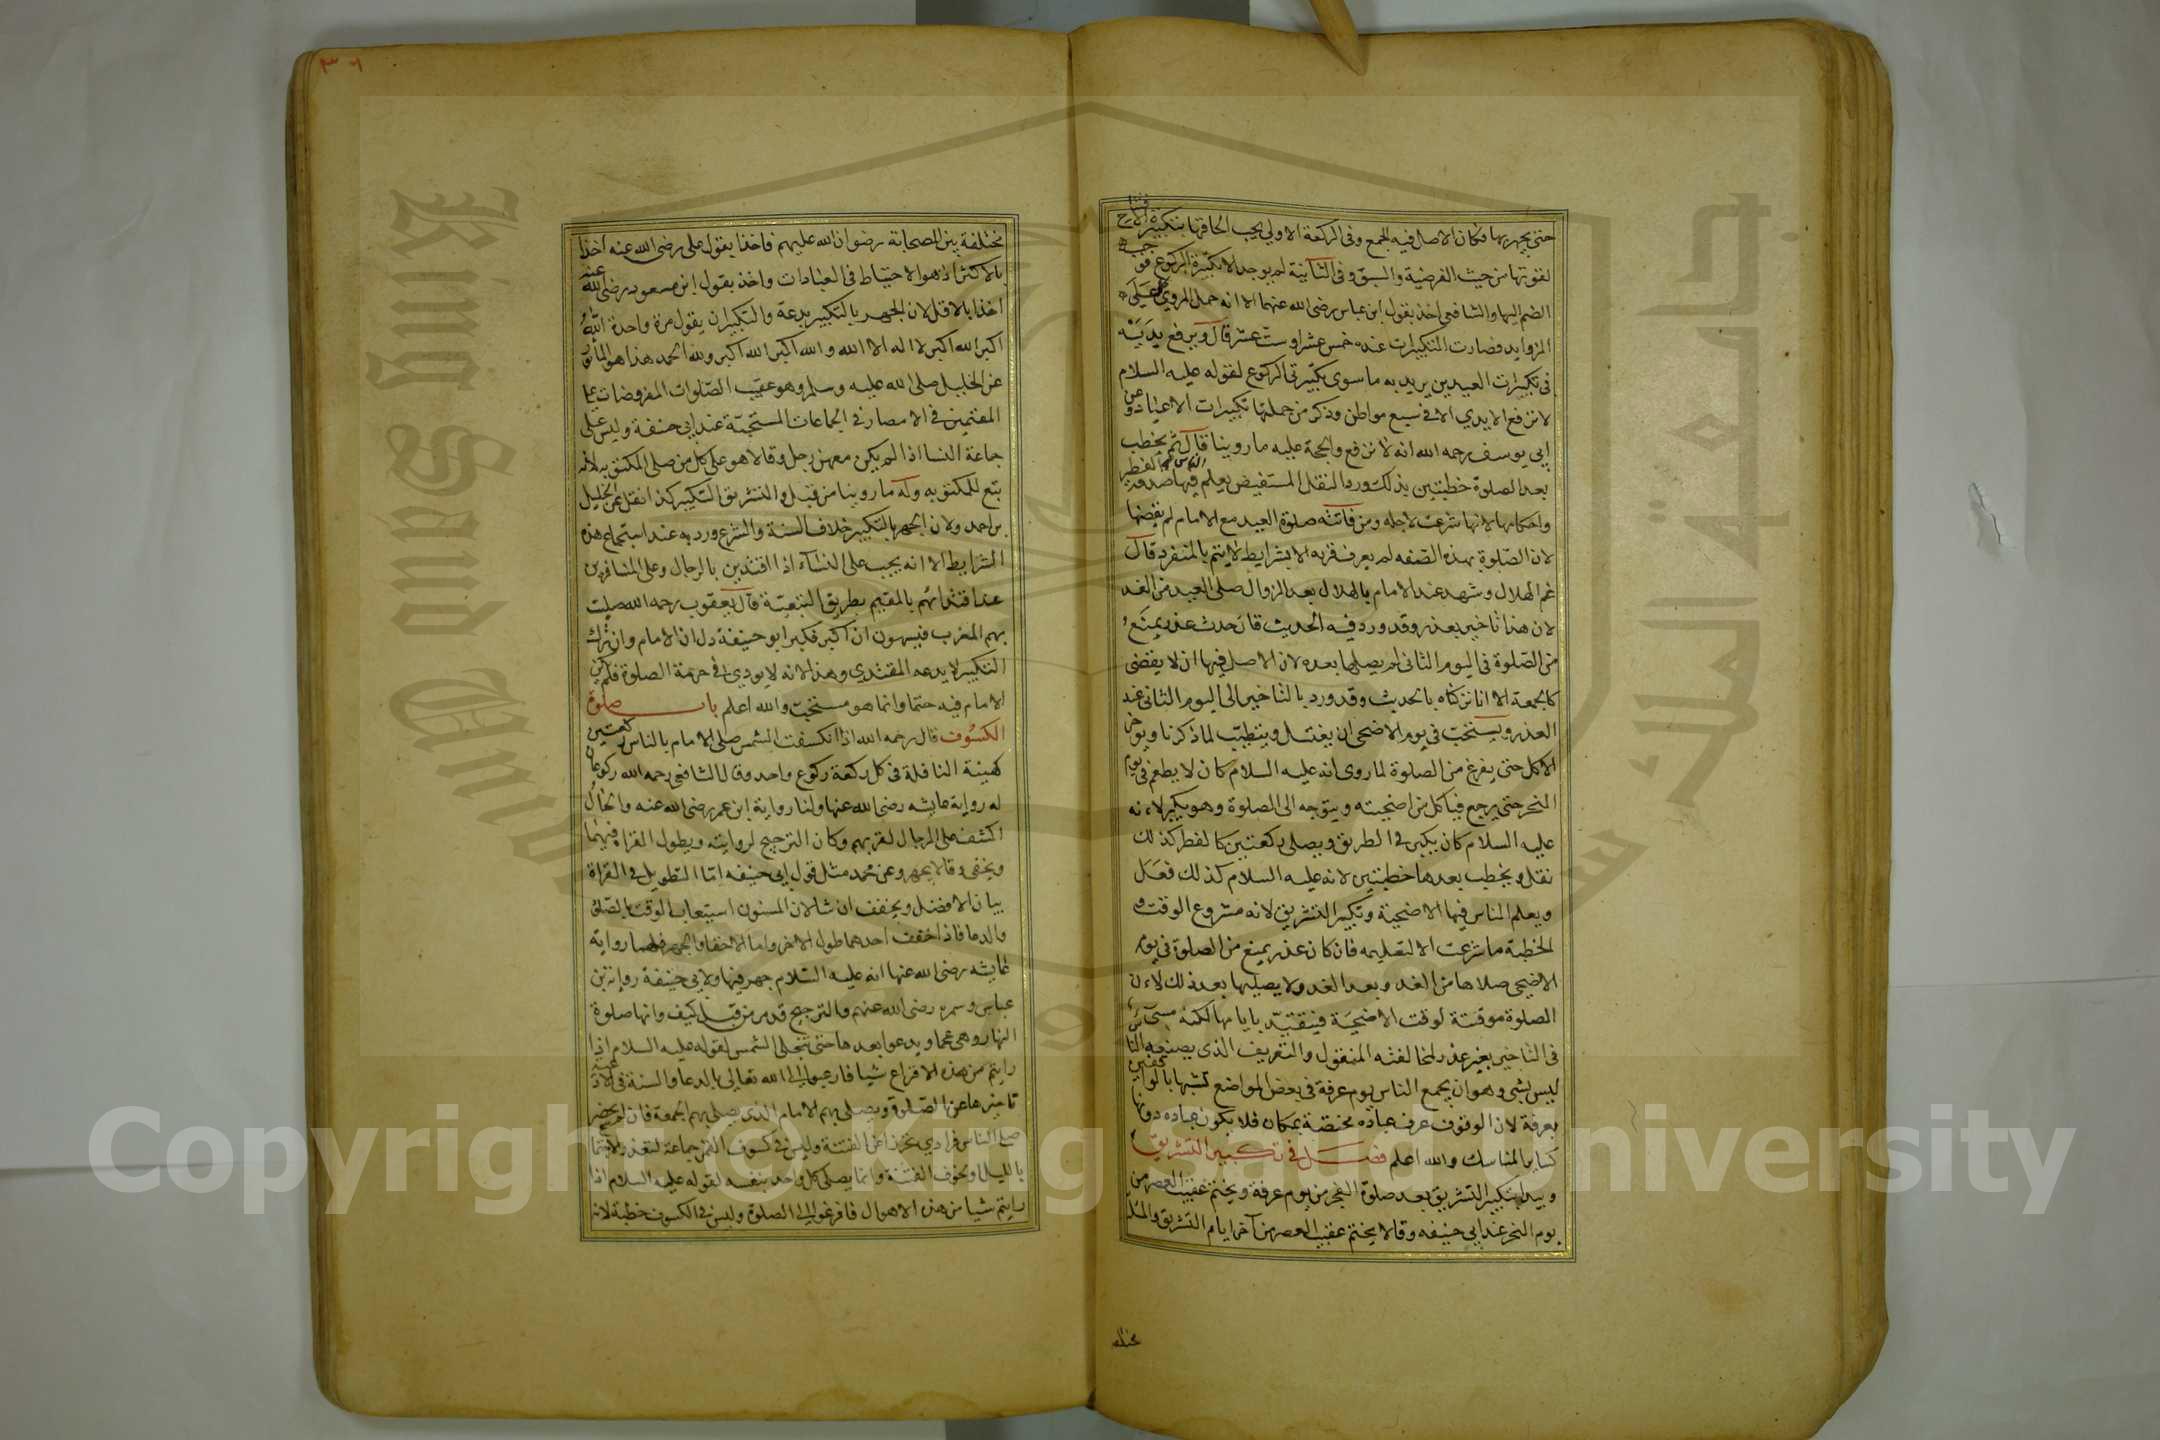 حتى يجهر بها فكان الاصل فيه الجمع وفى الركعة الاولى يجب الحاقها بتكبيرة الافتتاح
لقوتها من حيث الفرضية والسبق وفى الثانية لم يوجد الا تكبيرة الركوع فوجب
الضم اليها والشافعى اخذ بقول ابن عباس رضى الله عنهما الا انه حمل المروى كله على
الزوايد فصارت التكبيرات عنده خمس عشر او ست عشر قال ويرفع يديه
فى تكبيرات العيدين يريد به ما سوى تكبيرتى الركوع لقوله عليه السلام
لا ترفع الايدي الا في سبع مواطن وذكر من جملتها تكبيرات الاعياد وعن
ابي يوسف رحمه الله انه لا ترفع والحجة عليه ما روينا قال ثم يخطب
بعد الصلوة خطبتين بذلك ورد النقل المستفيض يعلم الناس فيها صدقة الفطر
واحكامها لانها شرعت لاجله ومن فاتته صلوة العيد مع الامام لم يقضها
لان الصلوة بهذه الصفه لم يعرف قربه الا بشرايط لا يتم بالمنفرد قال
غم الهلال وشهد عند الامام بالهلال بعد الزوال صلى العيد من الغد
لان هذا تاخير بعذر وقد ورد فيه الحديث فان حدث عذر يمنع
من الصلوة فى اليوم الثانى لم يصلها بعده لان الاصل فيها ان لا يقضى
كالجمعة الا انا تركناه بالحديث وقد ورد بالتاخير الى اليوم الثانى عند
العذر ويستحب فى يوم الاضحى ان يغتسل ويتطيب لما ذكرنا ويوخر
الاكل حتى يفرغ من الصلوة لما روى انه عليه السلام كان لا يطعم فى يوم
النحر حتى يرجع فياكل من اضحيته ويتوجه الى الصلوة وهو يكبر لانه
عليه السلام كان يكبر في الطريق ويصلى ركعتين كالفطر كذلك
نقل ويخطب بعدها خطبتين لانه عليه السلام كذلك فعل
ويعلم الناس فيها الاضحية وتكبير التشريق لانه مشروع الوقت و
الخطبة ما شرعت الا لتعليمه فان كان عذر يمنع من الصلوة فى يوم
الاضحى صلاها من الغد وبعد الغد ولا يصليها بعد ذلك لان
الصلوة موقتة لوقت الاضحية فيتقيد بايامها لكنه مسىء
فى التاخير بغير عذر لمخالفته المنقول والتعريف الذى يصنعه الناس
ليس بشى وهو ان يجمع الناس يوم عرفة في بعض المواضع تشبها بالواقفين
بعرفة لان الوقوف عرف عبادة مختصة بمكان فلا يكون عباده دونها
كساير المناسك والله اعلم فصل في تكبير التشريق
ويبدا بتكبير التشريق بعد صلوة الفجر من يوم عرفة ويختم عقيب العصر من
يوم النحر عند ابي حنيفه وقالا يختم عقيب العصر من آخر ايام التشريق والمسلة
مختلفة
٣٦
مختلفة بين الصحابة رضوان الله عليهم فاخذا بقول على رضى الله عنه اخذا
بالاكثر اذ هو الاحتياط فى العبادات واخذ بقول ابن مسعود رضى الله عنه
اخذا بالاقل لان الجهر بالتكبير بدعة والتكبير ان يقول مرة واحدة الله
اكبر الله اكبر لا اله الا الله والله اكبر الله اكبر ولله الحمد هذا هو الماثور
عن الخليل صلى الله عليه وسلم وهو عقيب الصلوات المفروضات على
المقيمين فى الامصار في الجماعات المستحبة عند ابي حنيفة وليس على
جماعة النسا اذا لم يكن معهن رجل وقالا هو على كل من صلى المكتوبه لانه
تبع للمكتوبه وله ما روينا من قبل والتشريق التكبير كذا نقل عن الخليل
بن احمد ولان الجهر بالتكبير خلاف السنة والشرع ورد به عند استجماع هذه
الشرايط الا انه يجب على النساء اذا اقتدين بالرجال وعلى المسافرين
عند اقتدائهم بالمقيم بطريق التبعية قال يعقوب رحمه الله صليت
بهم المغرب فسهوت ان اكبر فكبر ابو حنيفة دل ان الامام وان ترك
التكبير لا يدعه المقتدى وهذا لانه لا يودي في حرمة الصلوة فلم يكن
الامام فيه حتما وانما هو مستحب والله اعلم باب صلوة
الكسوف قال رحمه الله اذا انكسفت الشمس صلى الامام بالناس ركعتين
كهيئة النافلة فى كل ركعة ركوع واحد وقال الشافعى رحمه الله ركوعان
له رواية عايشه رضى الله عنها ولنا رواية ابن عمر رضى الله عنه والحال
اكشف على الرجال لقربهم وكان الترجيح لروايته ويطول القراة فيهما
ويخفى وقالا يجهر وعن محمد مثل قول ابي حنيفه اما التطويل في القراة
بيان الافضل ويخفف ان شا لان المسنون استيعاب الوقت بالصلوة
والدعا فاذا خفف احدهما طول الاخر واما الاخفا والجهر فلهما رواية
عايشه رضى الله عنها انه عليه السلام جهر فيها ولابي حنيفة رواية ابن
عباس وسمره رضى الله عنهم والترجيح قد مر من قبل كيف وانها صلوة
النهار وهى عجما ويدعو بعدها حتى تنجلى الشمس لقوله عليه السلام اذا
رايتم من هذه الافزاع شيا فارغبوا الى الله تعالى بالدعا والسنة فى الادعيه
تاخيرها عن الصلوة ويصلى بهم الامام الذى يصلى بهم الجمعة فان لم يحضر
صلى الناس فرادي تحرزا عن الفتنة وليس في كسوف القمر جماعة لتعذر الاجتماع
بالليل ولخوف الفتنة وانما يصلى كل واحد بنفسه لقوله عليه السلام اذا
رايتم شيا من هذه الاهوال فافزعوا الى الصلوة وليس في الكسوف خطبة لانه
King Saud University
جامعة الملك سعود
Copyright © King Saud University